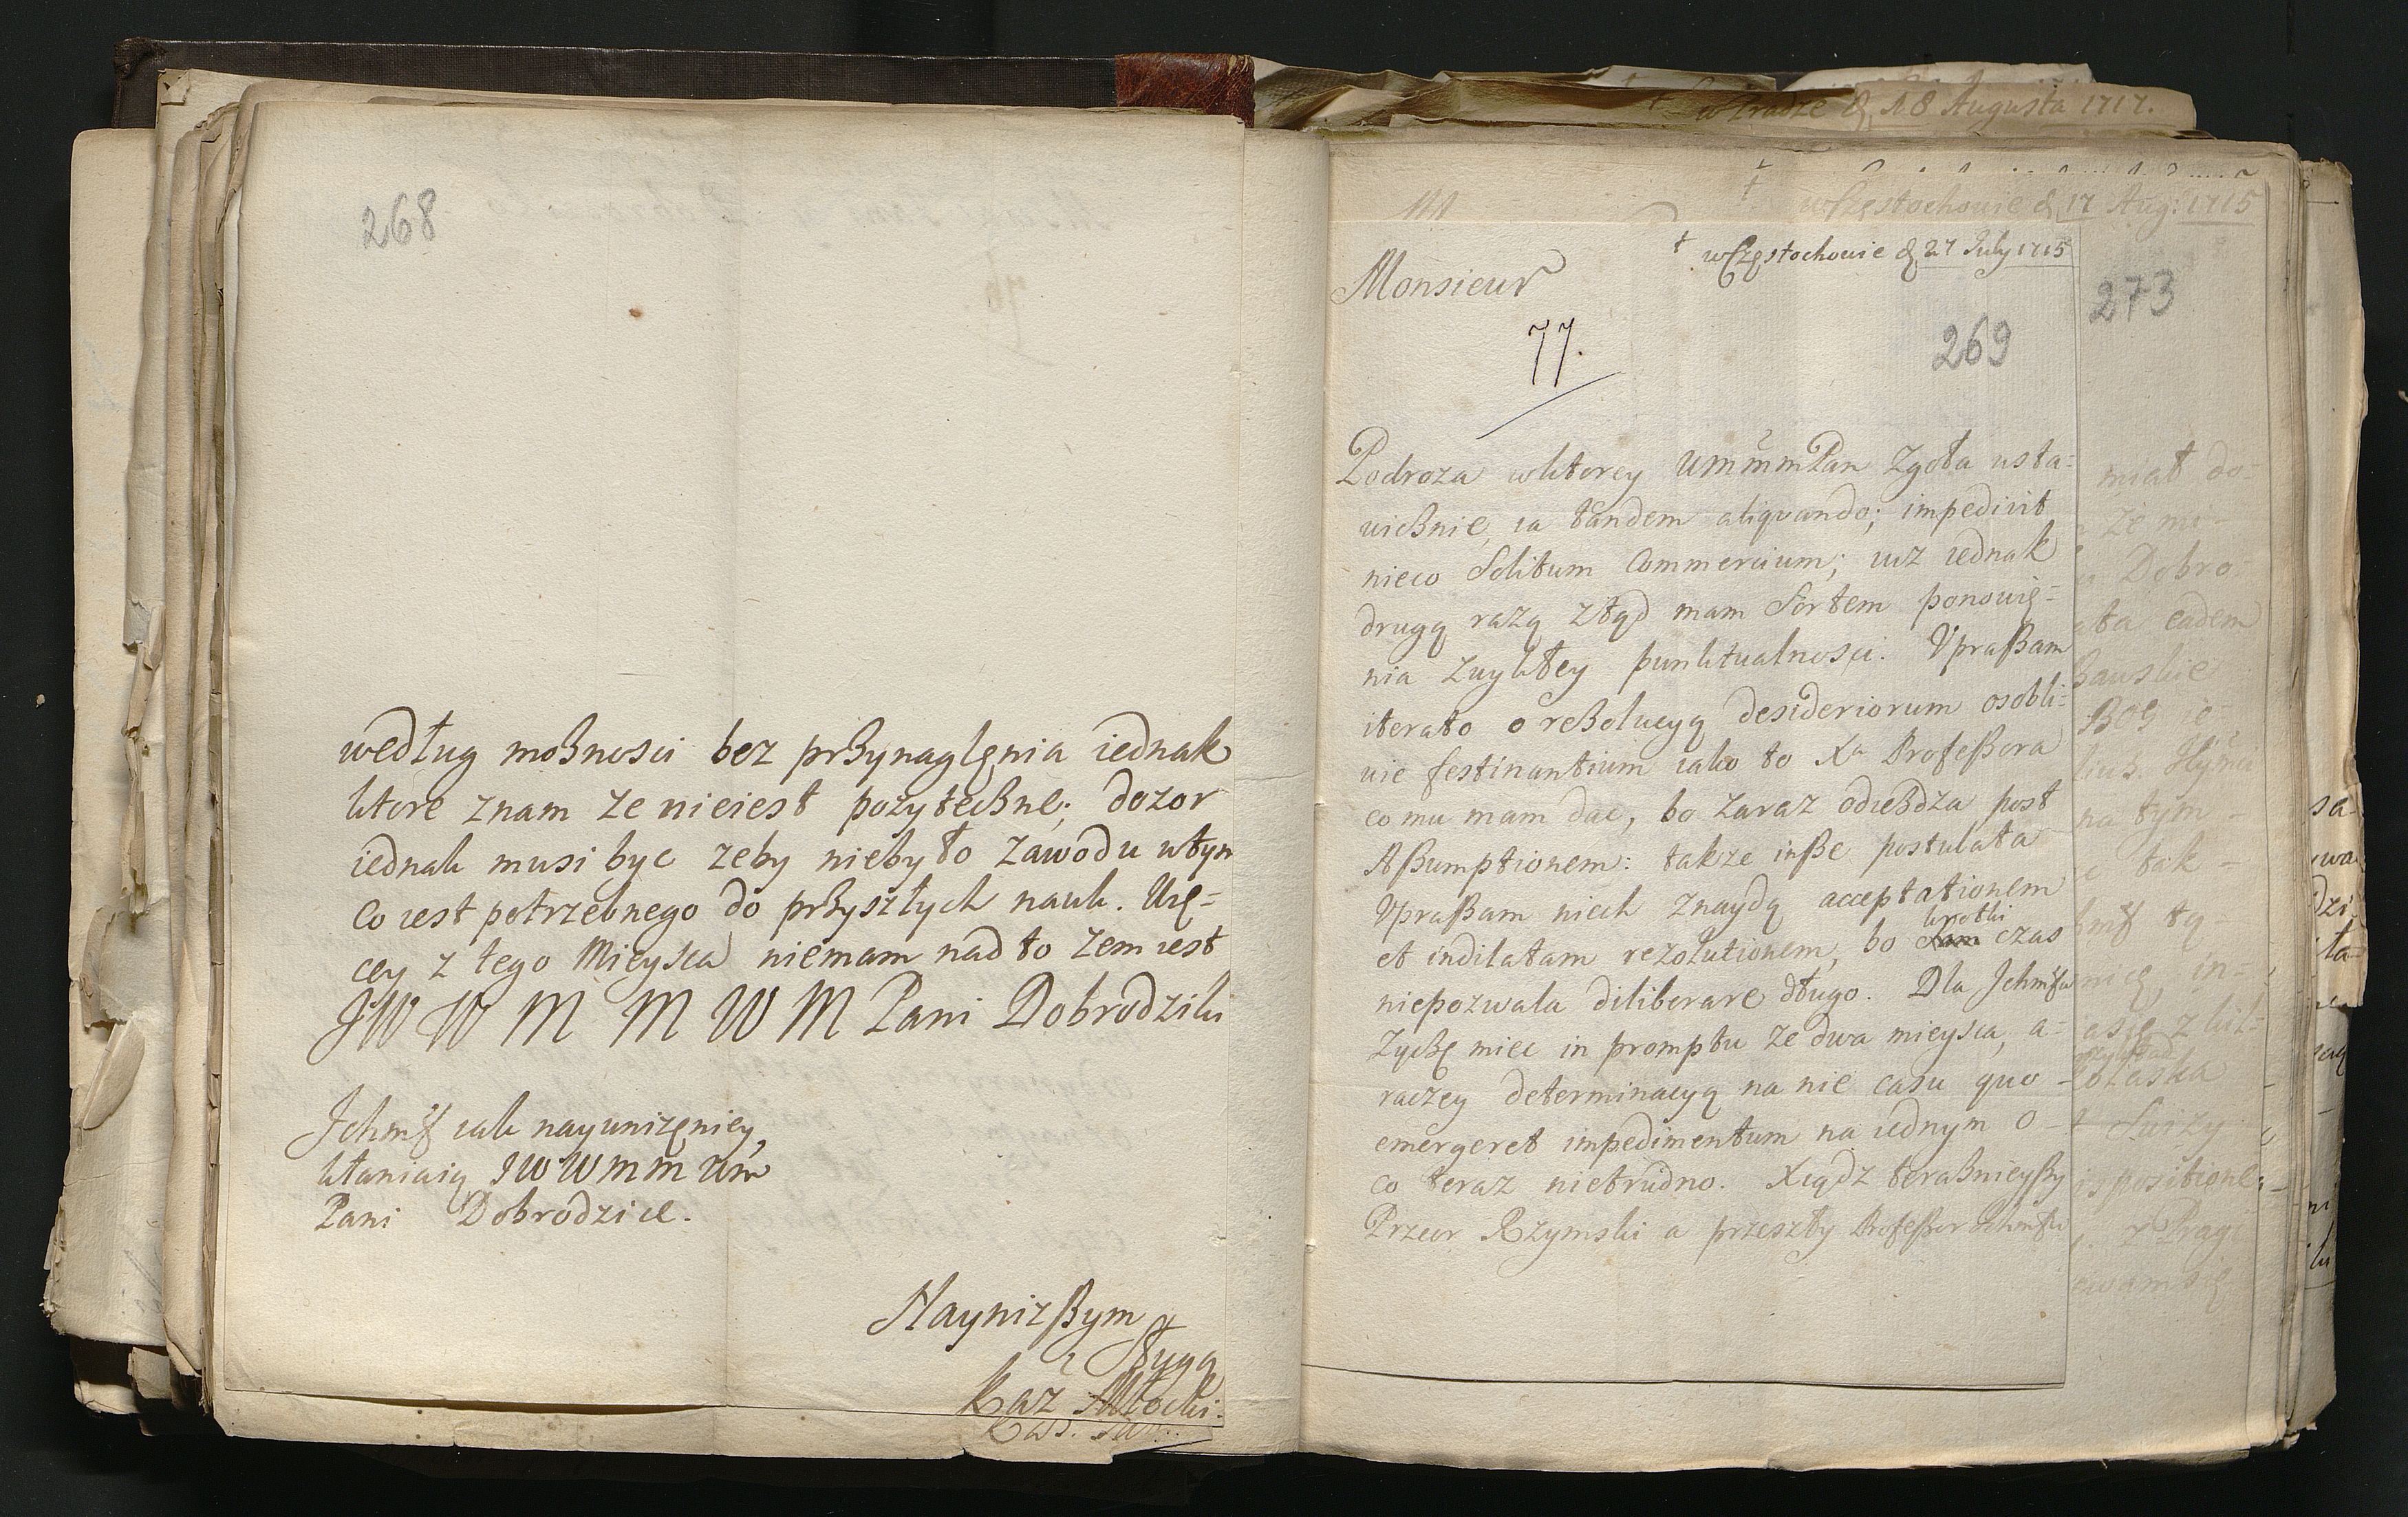 268
według moßnosci bez prßynaglęnia iednak
ktore znam ze nieiest pożyteßne; dozor
iednak musi byc zeby niebyło zawodu wtym
co iest potrzebnego do prßyszłych nauk. Wię-
cey z tego Mieysca niemam nad to zem iest
JW W M M W M Pani Dobrodziki
Jchmść iak nayunizęniey
kłaniaią JWWMM Wm
Pani Dobrodzice.
Maynizßym
sługą
Kaz Młocki.
w Zradze d. 18 Augusta 1717.
w Częstochowie d 17 Aug: 1715
† w Częstochowie d 27 July 1715
Monsieur
273
77.
269
Podroza wktorey UMmmPan Zgoła usta-
wißnie, ia tandem aliquando; impedivit
nieco Solitum Commercium; iuz iednak
drugą razą ztąd mam Sortem ponowię-
nia Zwykłey punktualnosci. Upraßam
iterato o reßolucyą desideriorum osobli-
wie festinantium iako to Xa Profeßora
co mu mam dac, bo zaraz odießdza post
Aßumptionem: takze inße postulata
Upraßam niech znaydą acceptationem
et indilatam rezolutionem, bo krotki czas
niepozwala diliberare długo. Dla Jchmściow
Zyczę miec in promptu ze dwa mieysca, a-
raczey determinacyą na nie casu quo
emergeret impedimentum na iednym o-
co teraz nietrudno. Xiądz teraßnieyßy
Przeor Rzymski a przeszły Profeßor Jchmściow
miał do-
ze mi-
Dobro-
eadem
na tym-
tak-
tą
in-
z Pragi